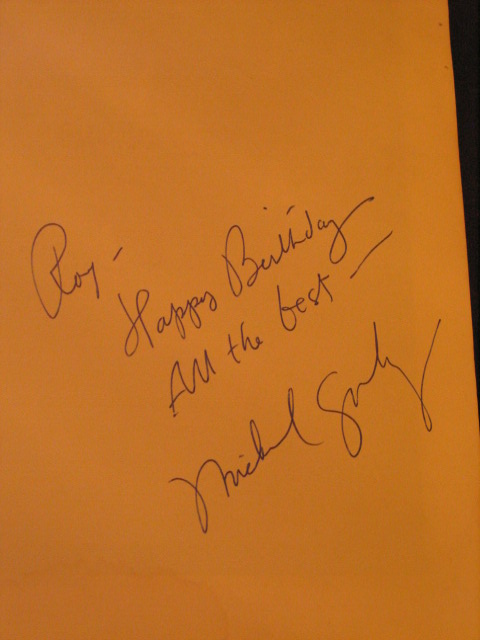 Roy -
Happy Birthday
All the best -
Michael